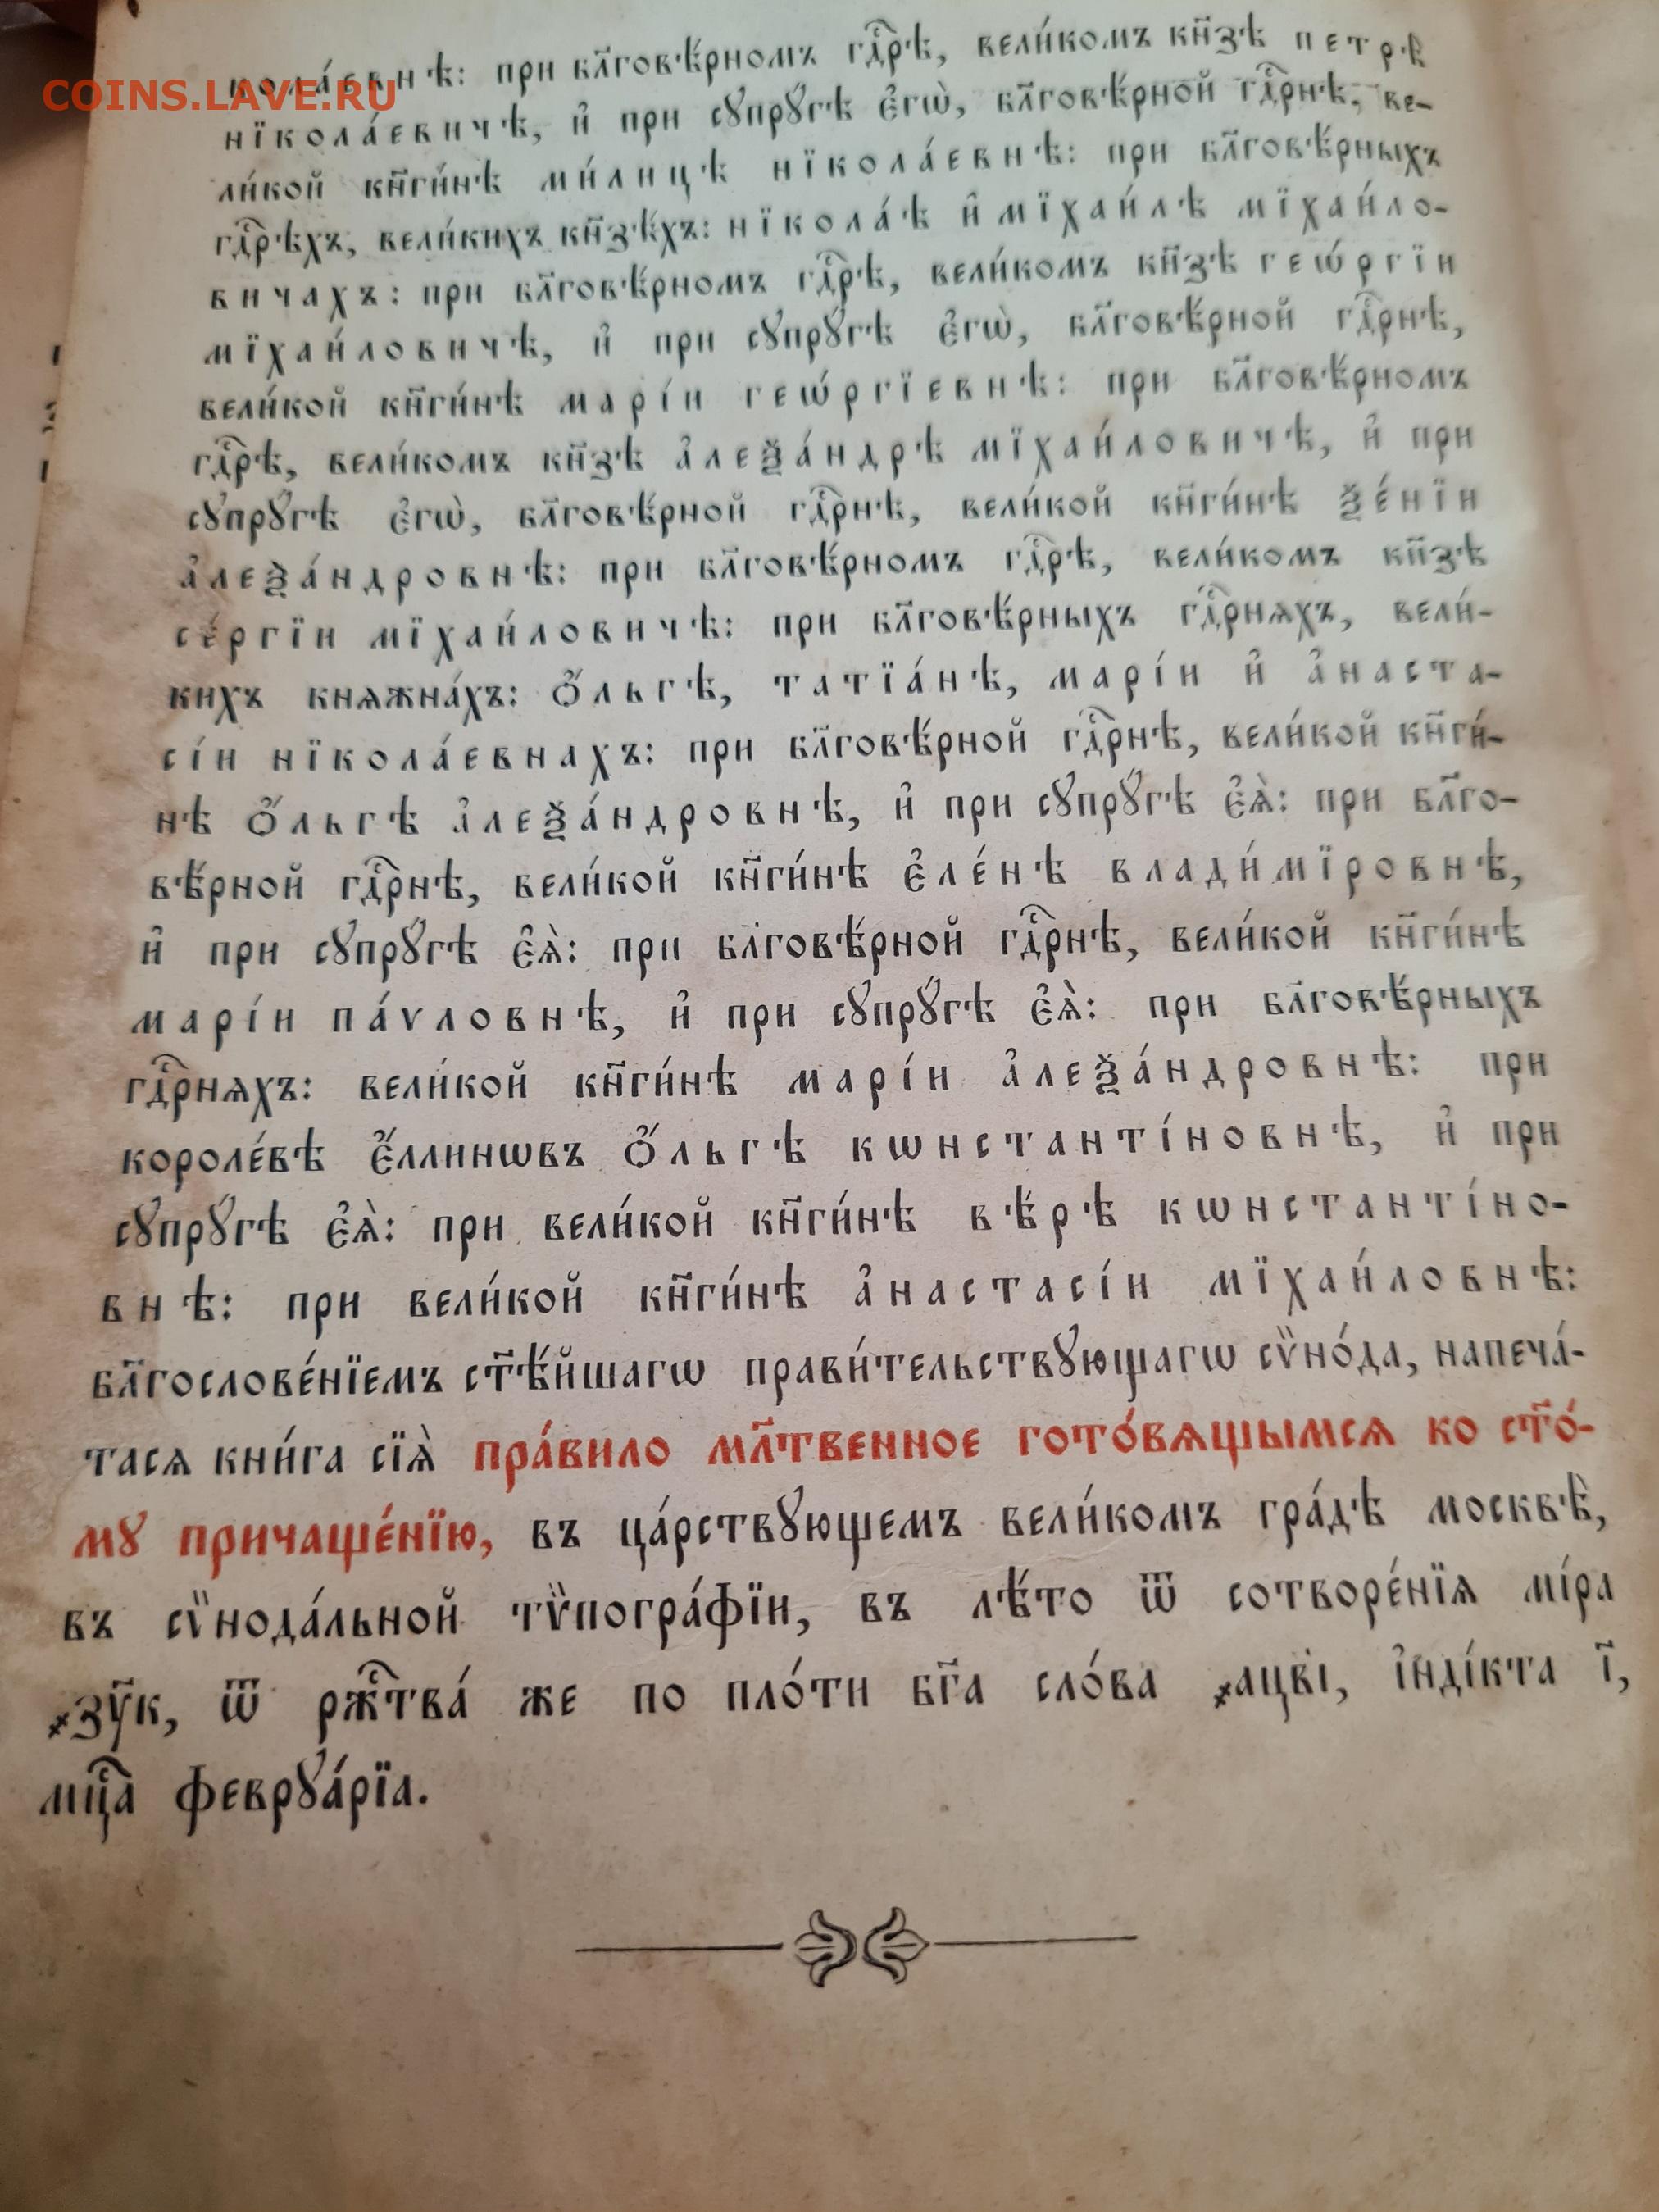 COINS.LAVE.RU
кола́евнѣ: при бл҃говѣ́рномъ гдⷭ҇рѣ, вели́комъ кн҃зѣ петрѣ̀
нїкола́евичѣ, и҆ при сꙋпрꙋ́гѣ є҆гѡ̀, бл҃говѣ́рной гдⷭ҇рнѣ, ве-
ли́кой кн҃ги́нѣ ми́лицѣ нїкола́евнѣ: при бл҃говѣ́рныхъ
гдⷭ҇рѣхъ, вели́кихъ кн҃зѣ́хъ: нїкола́ѣ и҆ мїхаи́лѣ мїхаи́ло-
вичахъ: при бл҃говѣ́рномъ гдⷭ҇рѣ, вели́комъ кн҃зѣ геѡ́ргїи
мїхаи́ловичѣ, и҆ при сꙋпрꙋ́гѣ є҆гѡ̀, бл҃говѣ́рной гдⷭ҇рнѣ,
вели́кой кн҃ги́нѣ марі́и геѡ́ргїевнѣ: при бл҃говѣ́рномъ
гдⷭ҇рѣ, вели́комъ кн҃зѣ а҆леѯа́ндрѣ мїхаи́ловичѣ, и҆ при
сꙋпрꙋ́гѣ є҆гѡ̀, бл҃говѣ́рной гдⷭ҇рнѣ, вели́кой кн҃ги́нѣ ѯе́нїи
а҆леѯа́ндровнѣ: при бл҃говѣ́рномъ гдⷭ҇рѣ, вели́комъ кн҃зѣ
се́ргїи мїхаи́ловичѣ: при бл҃говѣ́рныхъ гдⷭ҇рнѧхъ, вели́-
кихъ княжна́хъ: Ѻ҆́льгѣ, татїа́нѣ, марі́и и҆ а҆наста-
сі́и нїкола́евнахъ: при бл҃говѣ́рной гдⷭ҇рнѣ, вели́кой кн҃ги́-
нѣ Ѻ҆́льгѣ а҆леѯа́ндровнѣ, и҆ при сꙋпрꙋ́гѣ є҆ѧ̀: при бл҃го-
вѣ́рной гдⷭ҇рнѣ, вели́кой кн҃ги́нѣ є҆ле́нѣ влади́мїровнѣ,
и҆ при сꙋпрꙋ́гѣ є҆ѧ̀: при бл҃говѣ́рной гдⷭ҇рнѣ, вели́кой кн҃ги́нѣ
марі́и па́ѵловнѣ, и҆ при сꙋпрꙋ́гѣ є҆ѧ̀: при бл҃говѣ́рныхъ
гдⷭ҇рнѧхъ: вели́кой кн҃ги́нѣ марі́и а҆леѯа́ндровнѣ: при
короле́вѣ є҆́ллинѡвъ Ѻ҆́льгѣ кѡнстанті́новнѣ, и҆ при
сꙋпрꙋ́гѣ є҆ѧ̀: при вели́кой кн҃ги́нѣ вѣ́рѣ кѡнстанті́но-
внѣ: при вели́кой кн҃ги́нѣ а҆настасі́и мїхаи́ловнѣ:
бл҃гослове́нїемъ ст҃ѣ́йшагѡ прави́тельствꙋющагѡ сѷно́да, напеча́-
тася кни́га сїѧ̀ пра́вило мл҃твенное гото́вѧщымсѧ ко ст҃о́-
мꙋ причаще́нїю, въ ца́рствꙋющемъ вели́комъ гра́дѣ москвѣ̀,
въ сѷнода́льной тѷпогра́фїи, въ лѣ́то ѿ сотворе́нїѧ мі́ра
҂зу҃к, ѿ рⷤ҇тва́ же по пло́ти бг҃а сло́ва ҂ацві, і҆нді́кта і҃,
мцⷭ҇а феврꙋа́рїа.